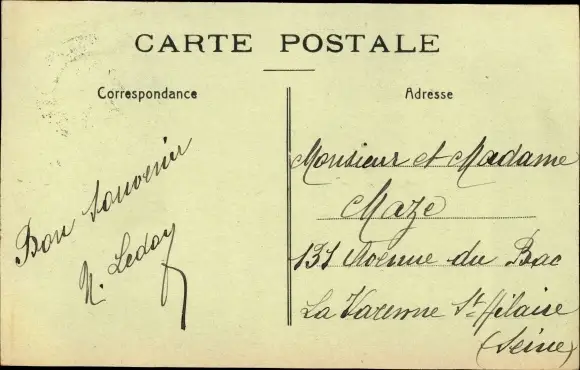 CARTE POSTALE
Correspondance
Adresse
Bon Souvenir
N. Ledoy
Monsieur et Madame
Maze
131 Avenue du Bac
La Varenne St-Hilaire
(Seine)